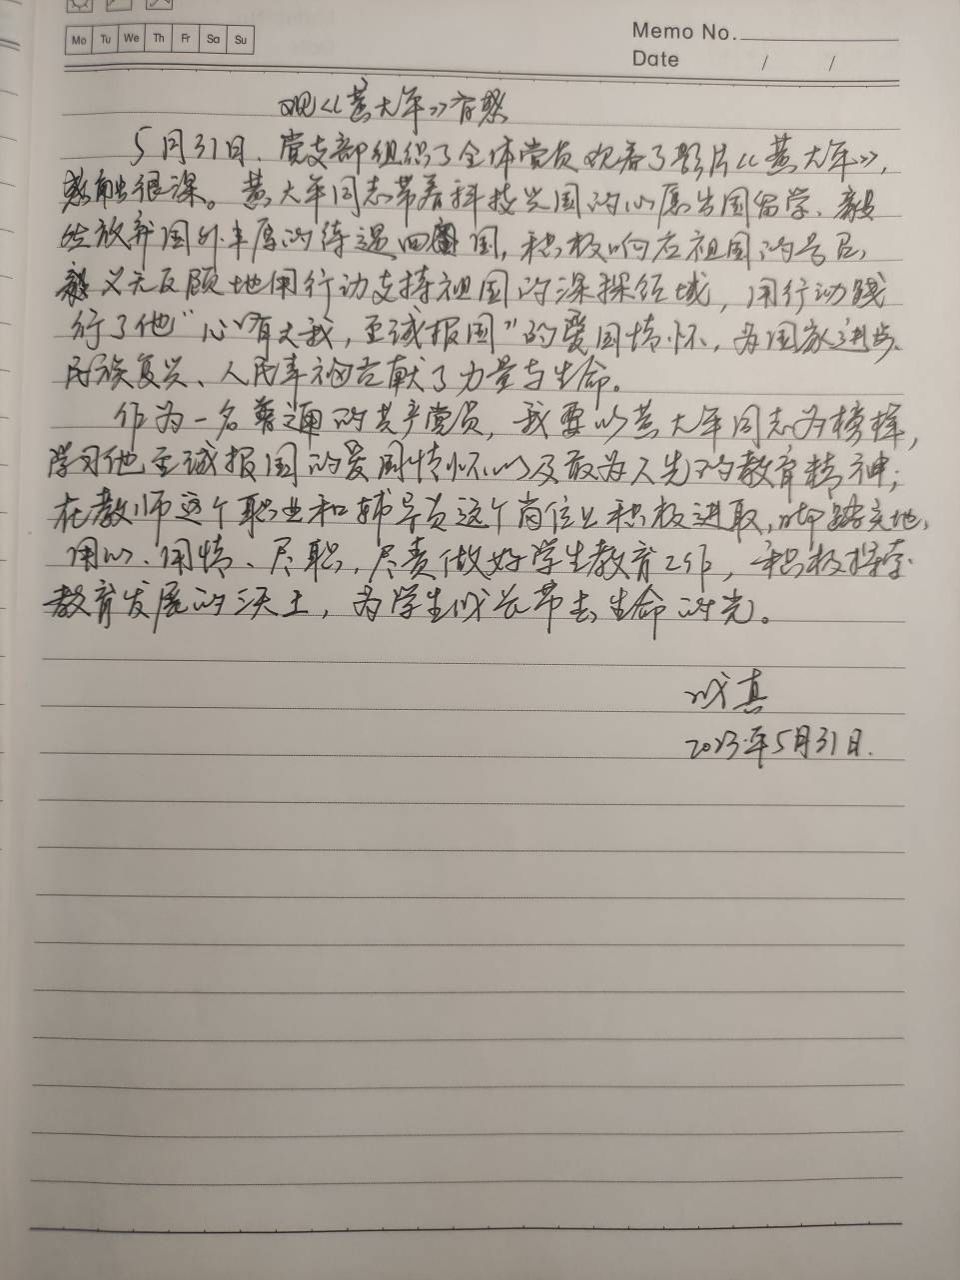 Mo Tu We Th Fr Sa Su
Memo No.
Date / /
观《黄大年》有感
5月31日，党支部组织了全体党员观看了影片《黄大年》，
感触很深。黄大年同志带着科技兴国的心愿出国留学、毅
然放弃国外丰厚的待遇回国，积极响应祖国的号召，
义无反顾地用行动支持祖国的深探领域，用行动践
行了他“心有大我，至诚报国”的爱国情怀，为国家进步、
民族复兴、人民幸福贡献了力量与生命。
作为一名普通的共产党员，我要以黄大年同志为榜样，
学习他至诚报国的爱国情怀以及敢为人先的教育精神；
在教师这个职业和辅导员这个岗位上积极进取，脚踏实地，
用心、用情、尽职，尽责做好学生教育工作，积极探索
教育发展的沃土，为学生成长带去生命的光。
成真
2023年5月31日.